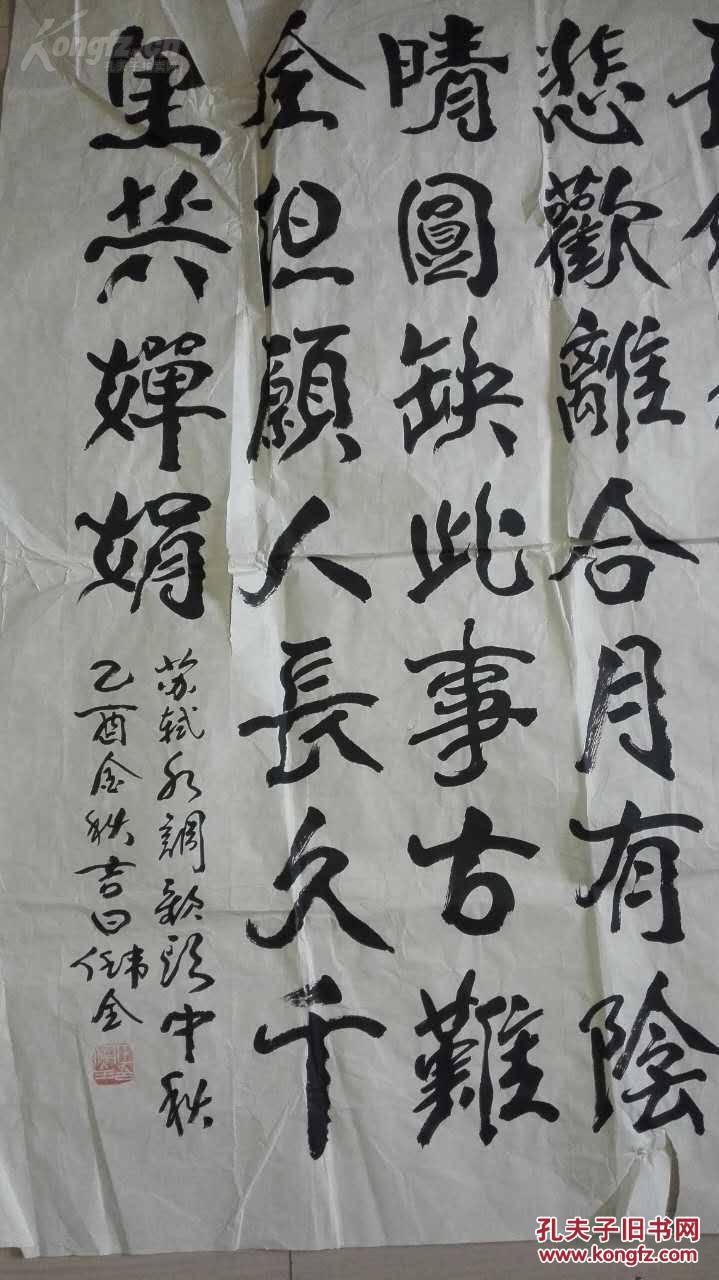 悲歡離合月有陰
晴圓缺此事古難
全但願人長久千
里共嬋娟
苏軾水調歌頭中秋
乙酉金秋吉日
Kongfz.com
孔夫子旧书网
www.kongfz.com